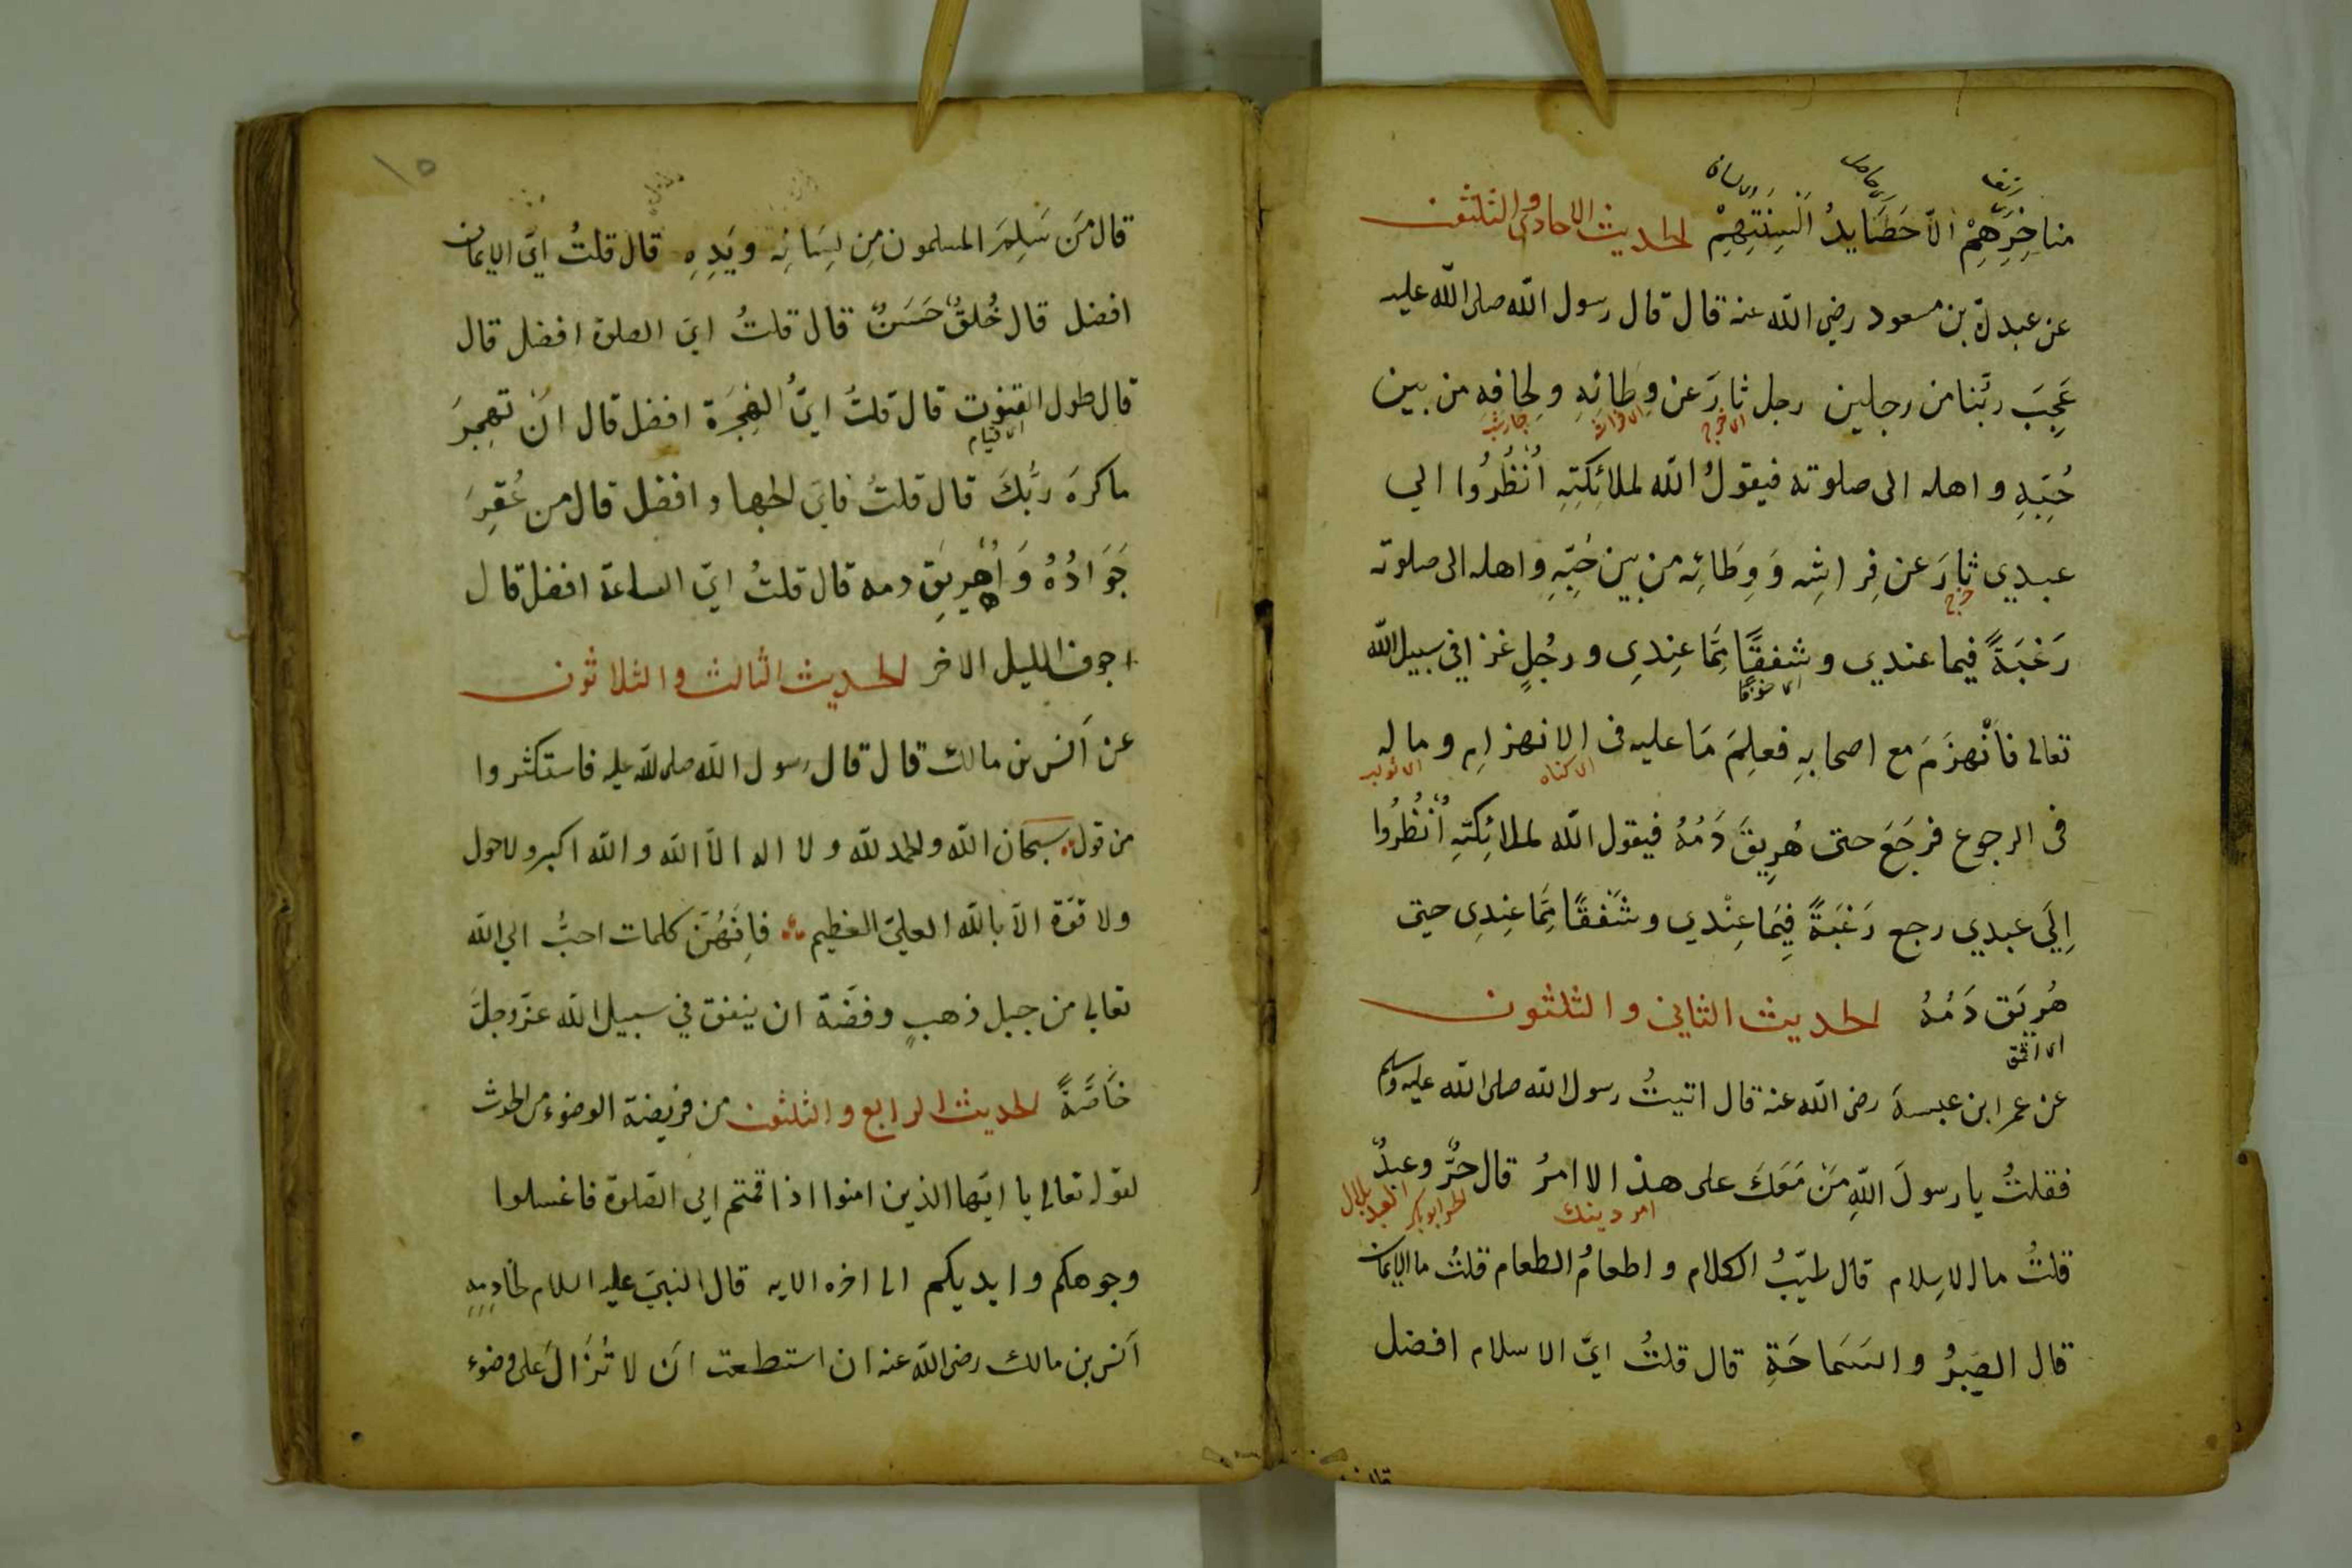 مناخِرِهِمْ الّا حَصَايدُ اَلْسِنَتِهِمْ الحديث الاحادى والثلثون
عن عبد الله بن مسعود رضي الله عنه قال قال رسول الله صلى الله عليه
عَجِبَ ربّنا من رجلين رجل ثارَ عن وِطائِهِ ولِحافِهِ من بين
اى خرج
حُبِّهِ واهله الى صلوته فيقولُ الله لملائِكَتِهِ اُنْظُرُوا الي
عبدي ثارَ عن فِراشِه وَوِطَائِه من بين حُبِّهِ واهله الى صلوته
خرج
رَغْبَةً فيما عندي وشفقًا مِمَّا عِندِى ورجُلٍ غزا في سبيل الله
اى خوفا
تعالى فاَنْهزَمَ مع اصحابِهِ فعلِمَ مَا عليه فى الانهزامِ وماله
اى كناه
فى الرجوع فرجَعَ حتى هُرِيقَ دَمُهُ فيقول الله لملائِكَتِهِ اُنْظُرُوا
اِلَى عبدي رجع رَغْبَةً فِيمَا عِنْدي وشَفَقًا مِمَّا عِندِى حتى
هُرِيَق دَمُهُ الحديث الثاني والثلثون
عن عمر ابن عبسة رضى الله عنه قال اتيتُ رسول الله صلى الله عليه وسلم
فقلتُ يا رسولَ اللهِ مَنْ مَعَكَ على هذا الاامرُ قال حُرٌّ وعبدٌ
امر دينك
الحر ابو بكر العبد بلال
قلتُ ما الاسِلام قال طيّبُ الكلام واطعامُ الطعام قلتُ ما الايمان
قال الصَبرُ والسَمَاحَةِ قال قلتُ ايّ الاسلام افضل
١٥
قال مَن سَلِمَ المسلمون مِن لِسَانِه ويَدِهِ قال قلتُ ايّ الايمان
افضل قال خُلقٌ حَسَنٌ قال قلتُ ايّ الصلوة افضل قال
قال طول القنوت قال قلتُ ايُّ الهِجْرَة افضل قال اَنْ تهجِرَ
اى قيام
ما كرهَ ربُّكَ قال قلتُ فاىّ الجهاد افضل قال من عُقِرَ
جَوَادُهُ وَاُهْرِيقَ دمه قال قلتُ ايّ الساعة افضل قال
اجوف الليل الاخر الحديث الثالث والثلاثون
عن اَنس بن مالك قال قال رسول الله صلى الله عليه فاستكثروا
من قول سبحان الله والحمد لله ولا اله الّا الله والله اكبر ولا حول
ولا قوّة الّا بالله العليّ العظيم فاِنّهُنّ كلمات احبُّ الي الله
تعالى من جبل ذهبٍ وفضّة ان ينفق في سبيل الله عزّ وجلّ
خاصّةً الحديث الرابع والثلثون من فريضة الوضوء من الحدث
لقوله تعالى يا ايّها الذين امنوا اذا قمتم الى الصّلوة فاغسلوا
وجوهكم وايديكم الى اخره الايه قال النبىّ عليه السلام لخادِمِهِ
اَنس بن مالك رضى الله عنه ان استطعت اَن لا تُزَالَ على وضوء